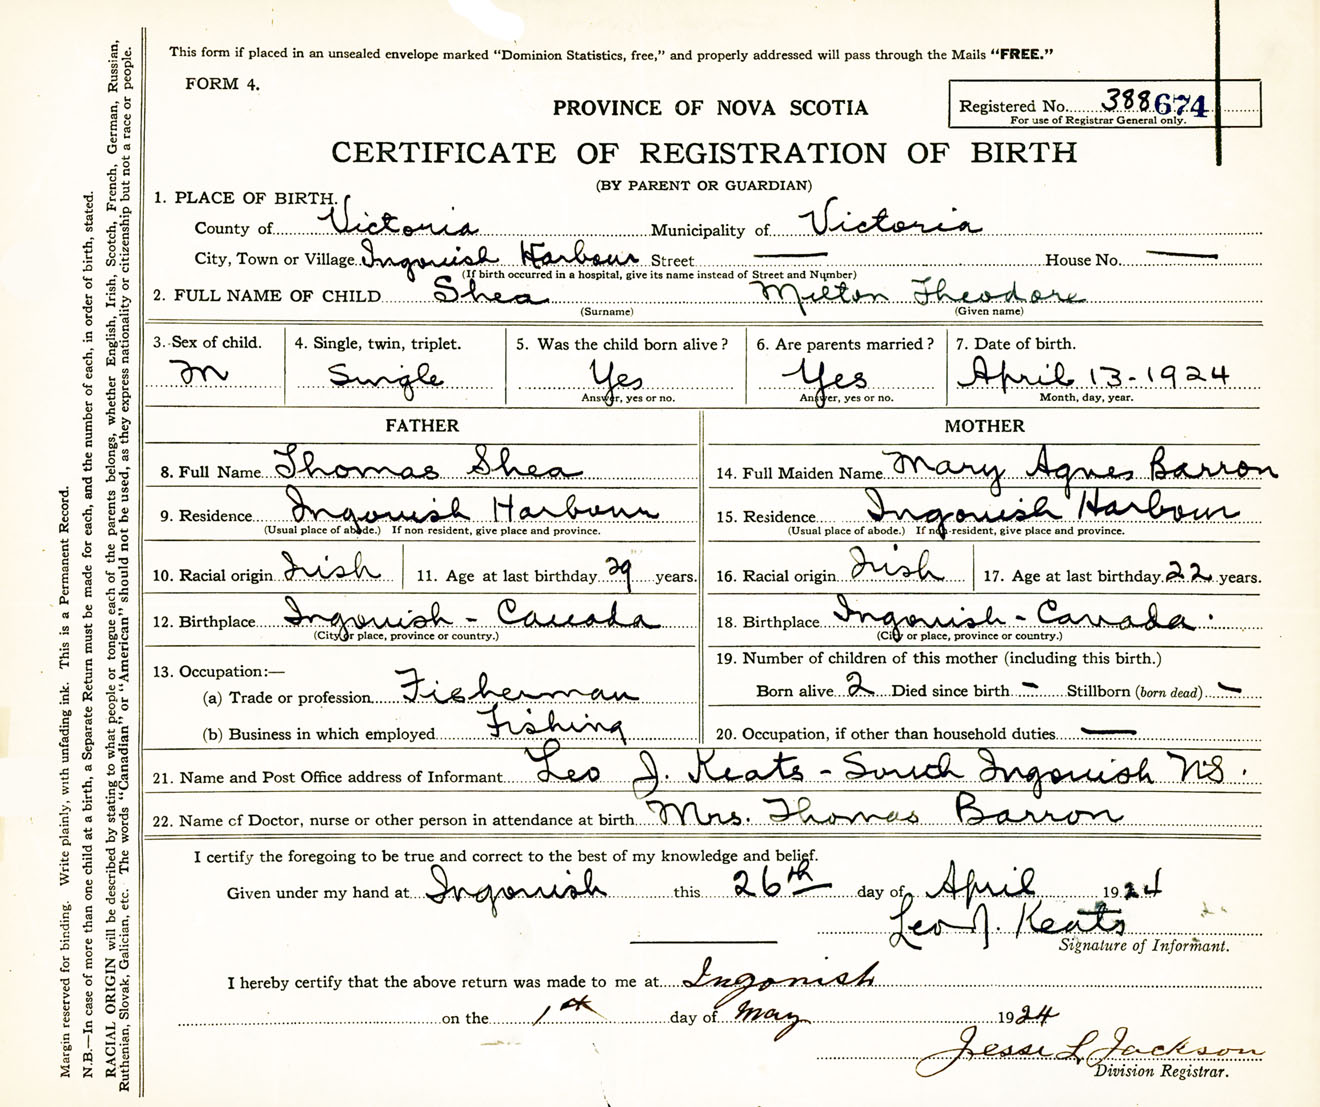 This form if placed in an unsealed envelope marked "Dominion Statistics, free," and properly addressed will pass through the Mails "FREE."
FORM 4.
PROVINCE OF NOVA SCOTIA
Registered No. 388674
For use of Registrar General only.
CERTIFICATE OF REGISTRATION OF BIRTH
(BY PARENT OR GUARDIAN)
1. PLACE OF BIRTH.
County of Victoria Municipality of Victoria
City, Town or Village Ingonish Harbour Street — House No. —
(If birth occurred in a hospital, give its name instead of Street and Number)
2. FULL NAME OF CHILD Shea Milton Theodore
(Surname) (Given name)
3. Sex of child. 4. Single, twin, triplet. 5. Was the child born alive? 6. Are parents married? 7. Date of birth.
M Single Yes Yes April 13-1924
Answer, yes or no. Answer, yes or no. Month, day, year.
FATHER MOTHER
8. Full Name Thomas Shea 14. Full Maiden Name Mary Agnes Barron
9. Residence Ingonish Harbour 15. Residence Ingonish Harbour
(Usual place of abode.) If non resident, give place and province. (Usual place of abode.) If non-resident, give place and province.
10. Racial origin Irish 11. Age at last birthday 29 years. 16. Racial origin Irish 17. Age at last birthday 22 years.
12. Birthplace Ingonish - Canada 18. Birthplace Ingonish - Canada
(City or place, province or country.) (City or place, province or country.)
13. Occupation:— 19. Number of children of this mother (including this birth.)
(a) Trade or profession Fisherman Born alive 2 Died since birth - Stillborn (born dead) -
(b) Business in which employed Fishing 20. Occupation, if other than household duties —
21. Name and Post Office address of Informant Leo J. Keats - South Ingonish N S.
22. Name of Doctor, nurse or other person in attendance at birth Mrs. Thomas Barron
I certify the foregoing to be true and correct to the best of my knowledge and belief.
Given under my hand at Ingonish this 26th day of April 1924
Leo J. Keats
Signature of Informant.
I hereby certify that the above return was made to me at Ingonish
on the 1st day of May 1924
Jesse L Jackson
Division Registrar.
Margin reserved for binding. Write plainly, with unfading ink. This is a Permanent Record.
N.B.—In case of more than one child at a birth, a Separate Return must be made for each, and the number of each, in order of birth, stated.
RACIAL ORIGIN will be described by stating to what people or tongue each of the parents belongs, whether English, Irish, Scotch, French, German, Russian,
Ruthenian, Slovak, Galician, etc. The words "Canadian" or "American" should not be used, as they express nationality or citizenship but not a race or people.